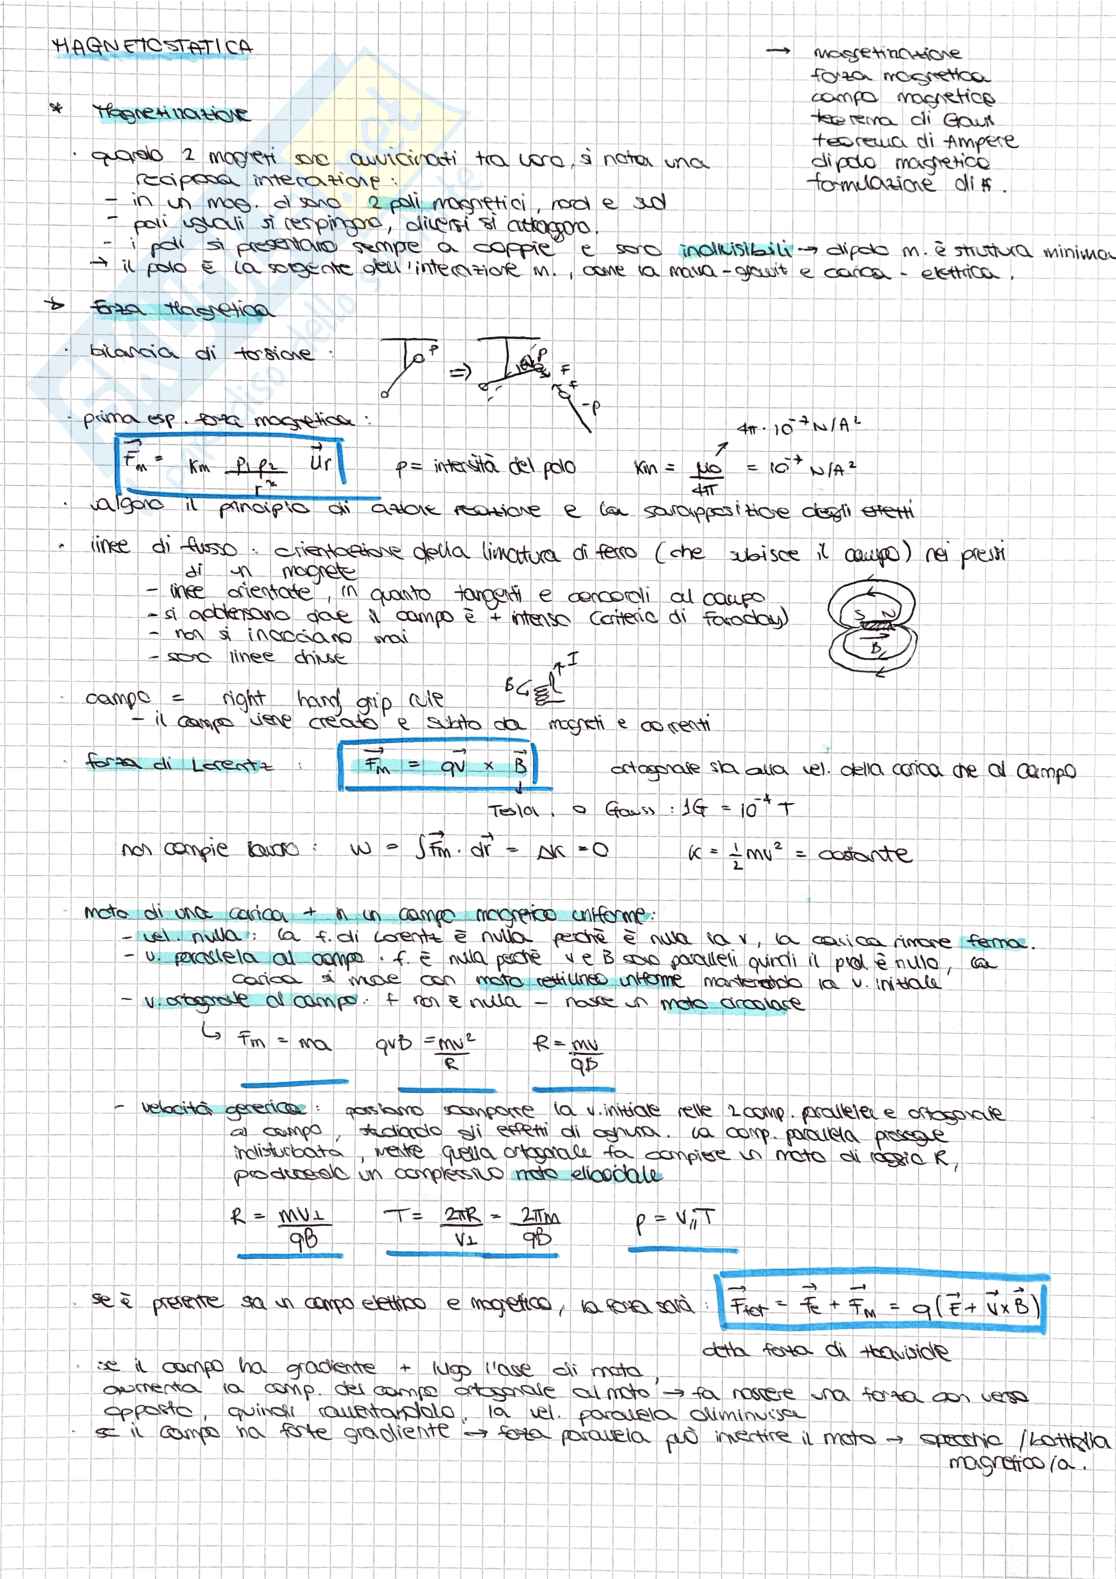 MAGNETOSTATICA
→ magnetizzazione
forza magnetica
campo magnetico
teorema di Gauss
teorema di Ampere
dipolo magnetico
formulazione di
* Magnetizzazione
· quando 2 magneti sono avvicinati tra loro, si nota una
reciproca interazione:
- in un mag. ci sono 2 poli magnetici, nord e sud
- poli uguali si respingono, diversi si attraggono.
- i poli si presentano sempre a coppie e sono indivisibili → dipolo m. è struttura minima
→ il polo è la sorgente dell'interazione m., come la massa-gravit e carica-elettrica.
Forza Magnetica
· bilancia di torsione:
P ⇒ P F F -P
· prima esp. forza magnetica:
4π·10⁻⁷ N/A²
Fm = Km p₁p₂/r² Ur p = intensità del polo Km = μ0/4π = 10⁻⁷ N/A²
· valgono il principio di azione reazione e la sovrapposizione degli effetti
· linee di flusso: orientazione della limatura di ferro (che subisce il campo) nei pressi
di un magnete
- linee orientate, in quanto tangenti e concordi al campo
- si addensano dove il campo è + intenso (criterio di Faraday)
- non si incrociano mai
- sono linee chiuse
S N
B
· campo = right hand grip rule B I
- il campo viene creato e subito da magneti e correnti
· forza di Lorentz: Fm = qv × B ortogonale sia alla vel. della carica che al campo
Tesla, o Gauss: 1G = 10⁻⁴ T
non compie lavoro: W = ∫Fm·dr = ΔK = 0 K = ½mv² = costante
moto di una carica + in un campo magnetico uniforme:
- vel. nulla: la f. di Lorentz è nulla perché è nulla la v, la carica rimane ferma.
- v. parallela al campo: f. è nulla perché v e B sono paralleli quindi il prod. è nullo, la
carica si muove con moto rettilineo uniforme mantenendo la v. iniziale
- v. ortogonale al campo: f non è nulla - nasce un moto circolare
↳ Fm = ma qvB = mv²/R R = mv/qB
- velocità generica: possiamo scomporre la v. iniziale nelle 2 comp. parallela e ortogonale
al campo, studiando gli effetti di ognuna. la comp. parallela prosegue
indisturbata, mentre quella ortogonale fa compiere un moto di raggio R,
producendo un complessivo moto elicoidale
R = mv⊥/qB T = 2πR/v⊥ = 2πm/qB p = v∥T
· se è presente sia un campo elettrico e magnetico, la forza sarà: Ftot = Fe + FM = q(E + v×B)
detta forza di Heaviside
· se il campo ha gradiente + lungo l'asse di moto,
aumenta la comp. del campo ortogonale al moto → fa nascere una forza con verso
opposto, quindi rallentandolo, la vel. parallela diminuisce
· se il campo ha forte gradiente → forza parallela può invertire il moto → specchio /bottiglia
magnetico/a.